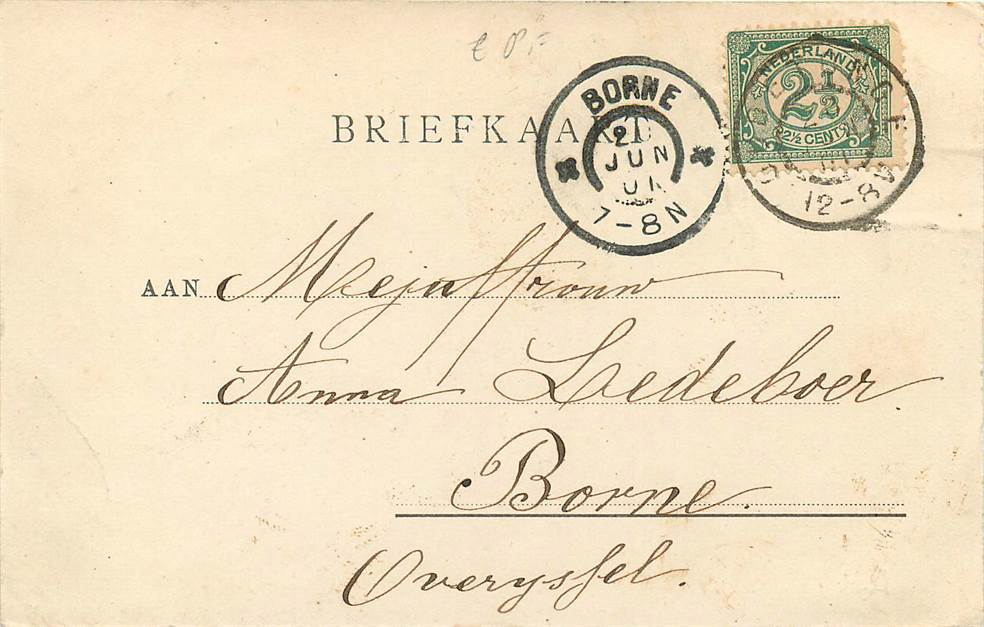 BRIEFKAART
BORNE
2 JUN 01
7-8N
NEDERLAND
2½
2½ CENT
12-8
AAN Mejuffrouw
Anna Ledeboer.
Borne.
Overyssel.